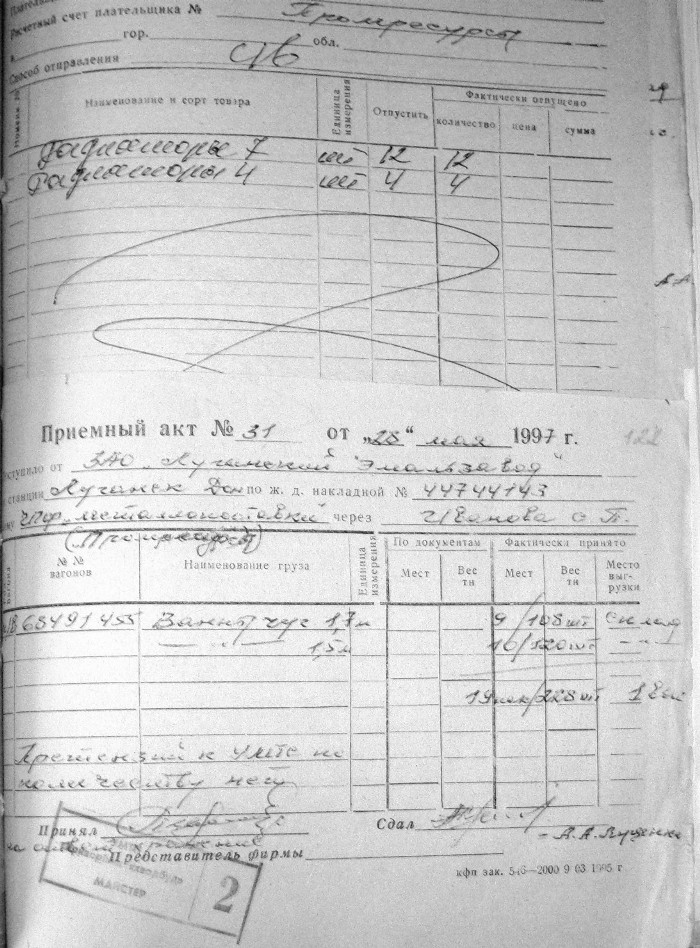 Расчетный счет плательщика № Промресурсы
гор. обл.
Способ отправления с/в
Наименование и сорт товара Единица измерения Отпустить Фактически отпущено
количество цена сумма
радиаторы 7 шт 12 12
радиаторы 4 шт 4 4
Приемный акт № 31 от „28“ мая 1997 г.
122
Поступило от ЗАО „Луганский Эмальзавод“
станции Луганск по ж. д. накладной № 44744143
„металлопоставки“ через Иванова с П.
(Промресурсы)
№ № вагонов Наименование груза Единица измерения По документам Фактически принято
Мест Вес тн Мест Вес тн Место выгрузки
68491455 Ванны чуг 1,7м 9/108шт склад
—"— 1,5м 10/120шт —"—
19 /228шт
Претензий к УМТС по
количеству нету
Принял Сдал
А.А.Луценко
на ответ
Представитель фирмы
МАЙСТЕР
2
кфп зак. 546—2000 9 03 1995 г